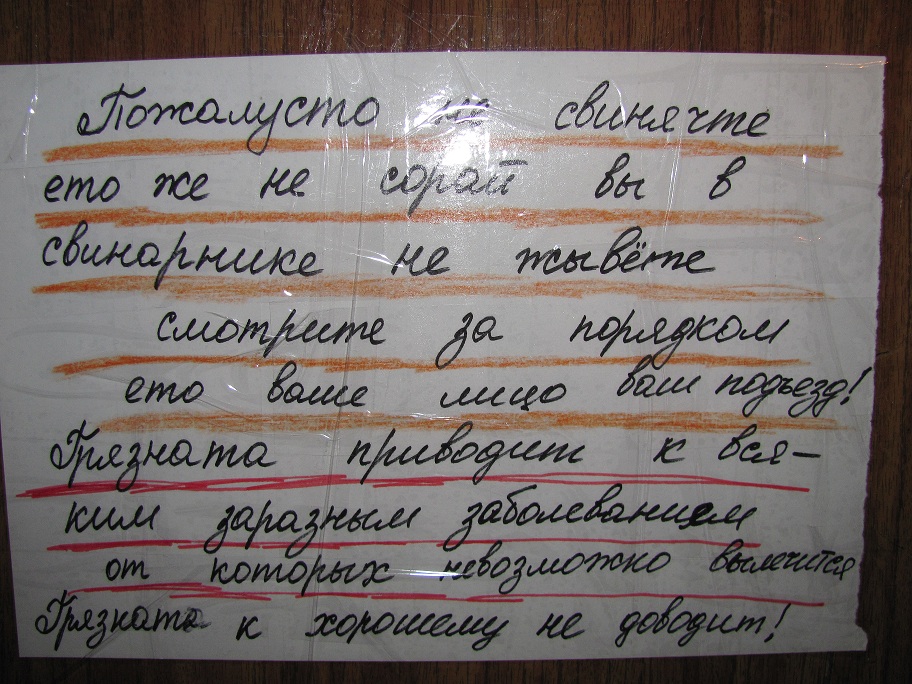 Пожалусто не свинячте
ето же не сорай вы в
свинарнике не жывёте
смотрите за порядком
ето ваше лицо ваш подъезд!
Грязната приводит к вся-
ким заразным заболеванием
от которых невозможно вылечится
Грязната к хорошему не доводит!